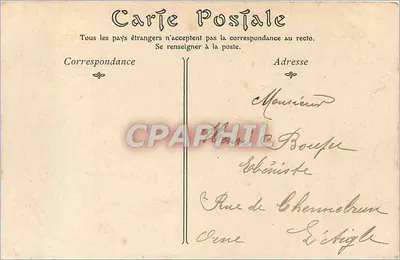 Carte Postale
Tous les pays étrangers n'acceptent pas la correspondance au recto.
Se renseigner à la poste.
Correspondance
Adresse
Monsieur
CPAPHIL
Ebéniste
Rue de Chennebrun
Orne L'Aigle